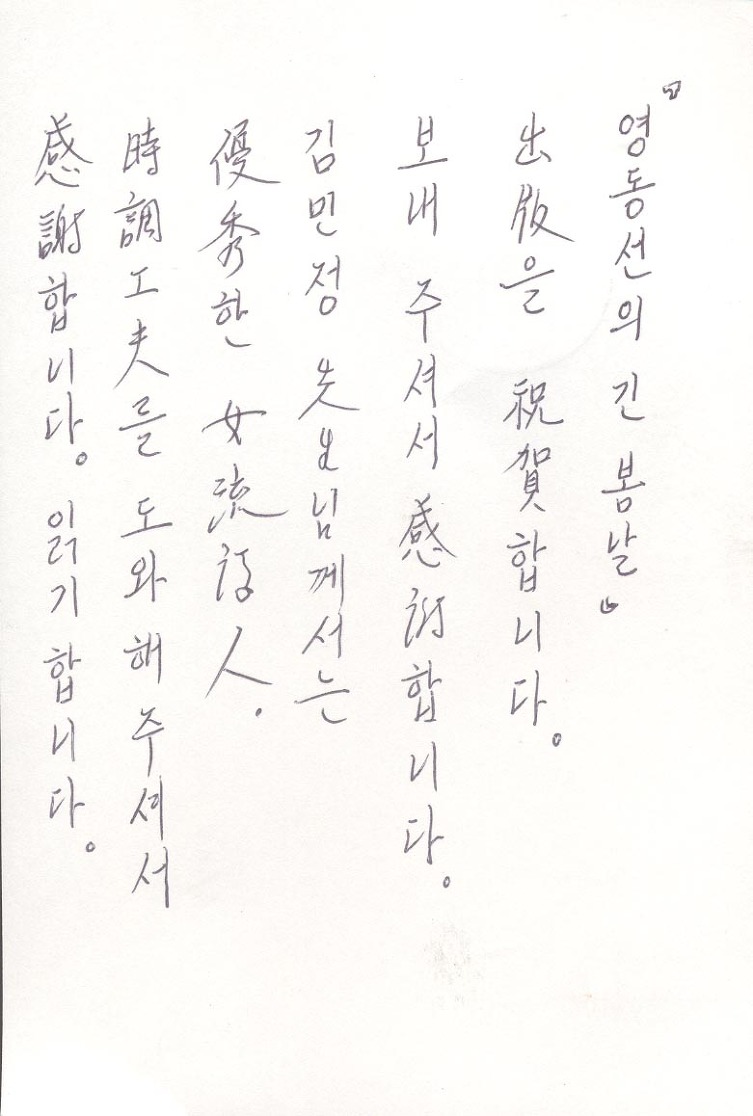 『영동선의 긴 봄날』
出版을 祝賀합니다。
보내 주셔서 感謝합니다。
김민정 先生님께서는
優秀한 女流詩人.
時調工夫를 도와해 주셔서
感謝합니다。 읽기 합니다。